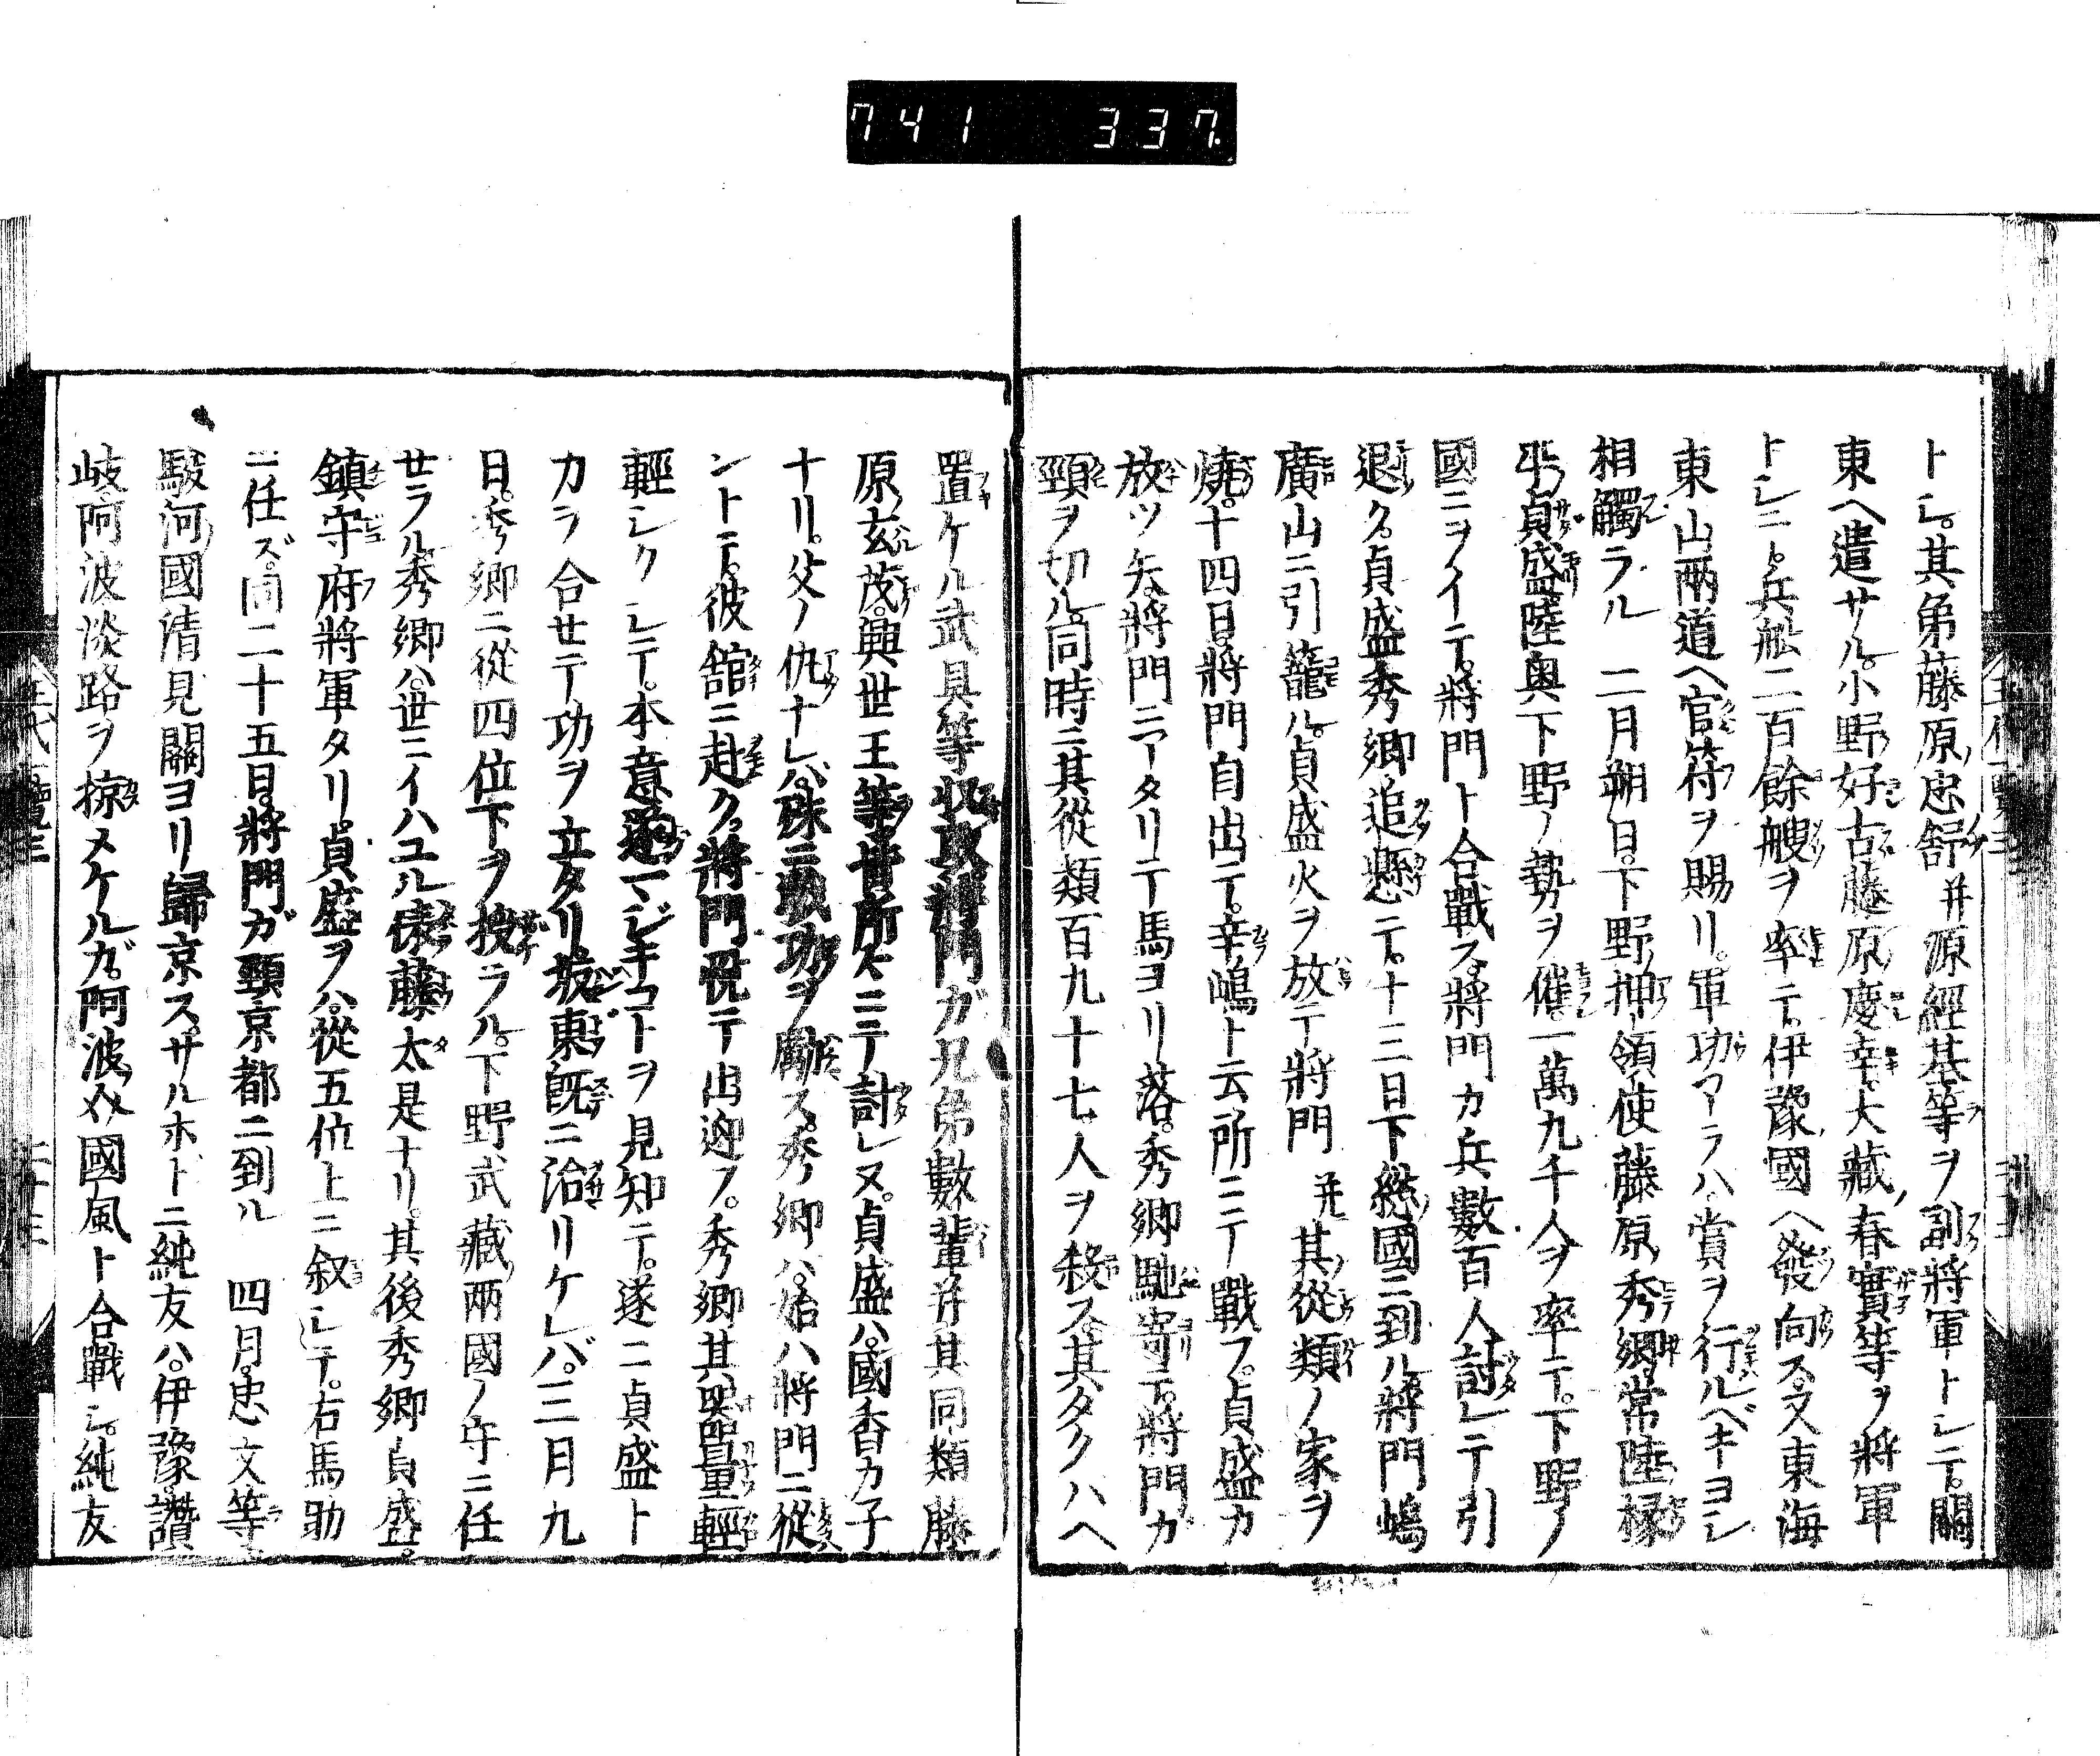 741 337
トシ。其弟藤原忠舒并源經基等ヲ副將軍トシテ。關
東ヘ遣サル。小野好古藤原慶幸大藏春實等ヲ將軍
トシテ。兵舩二百餘艘ヲ率テ。伊豫國ヘ發向ス。又東海
東山兩道ヘ官符ヲ賜リ。軍功アラハ。賞ヲ行ルベキヨシ
相觸ラル 二月朔日。下野押領使藤原秀郷。常陸掾
平貞盛陸奥下野ノ勢ヲ催。一萬九千人ヲ率テ。下野ノ
國ニヲイテ。將門ト合戰ス。將門カ兵數百人討レテ引
退ク。貞盛秀郷追懸テ。十三日下総國ニ到ル。將門嶋
廣山ニ引籠ル。貞盛火ヲ放テ將門 并其從類ノ家ヲ
燒。十四日。將門自出テ。辛嶋ト云所ニテ戰フ。貞盛カ
放ツ矢。將門ニアタリテ馬ヨリ落。秀郷馳寄テ。將門カ
頸ヲ切ル。同時ニ其從類百九十七人ヲ殺ス。其タクハヘ
置ケル武具等収攻將門ガ兄弟數輩并其同類藤
原玄茂。興世王等皆所々ニテ討レヌ。貞盛ハ。國香カ子
ナリ。父ノ仇ナレバ。殊ニ戰功ヲ勵ス。秀郷ハ。始ハ將門ニ從
ントテ。彼舘ニ赴ク。將門悦テ出迎フ。秀郷其器量輕
輕シクシテ。本意遂マジキコトヲ見知テ。遂ニ貞盛ト
カラ合セテ功ヲ立タリ。坂東既ニ治リケレバ。三月九
日。秀郷ニ從四位下ヲ授ラル。下野武藏兩國ノ守ニ任
セラル秀郷ハ。世ニイハユル俵藤太是ナリ。其後秀郷貞盛。
鎮守府將軍タリ。貞盛ヲハ。從五位上ニ叙シテ。右馬助
ニ任ズ。同二十五日。將門ガ頸京都ニ到ル 四月。忠文等
駿河國清見關ヨリ歸京ス。サルホドニ純友ハ。伊豫。讃
岐。阿波淡路ヲ掠メケルガ。阿波介國風ト合戰シ。純友